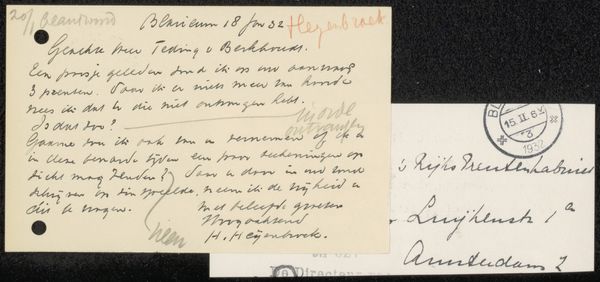 20/1 beantwoord
Blaricum 18 Jan 32
Heyenbroek
Geachte Heer Teding v Berkhout.
Een poosje geleden zond ik op uw aanvraag
3 prenten. Daar ik er niets meer van hoorde
vrees ik dat U die niet ontvangen hebt.
Is dat zoo?
in orde
ontvangen
Gaarne zou ik ook van U vernemen of ik U
in deze benarde tijden een paar teekeningen op
zicht mag zenden? Daar U daar in uw
schrijven op zinspeelde, neem ik de vrijheid U
dit te vragen.
Met beleefde groeten
Hoogachtend
H. Heyenbroek.
neen
BL
15.II.
3
1932
's Rijks Prentenkabinet
Luijkenstr 1a
Amsterdam Z
De Directeur